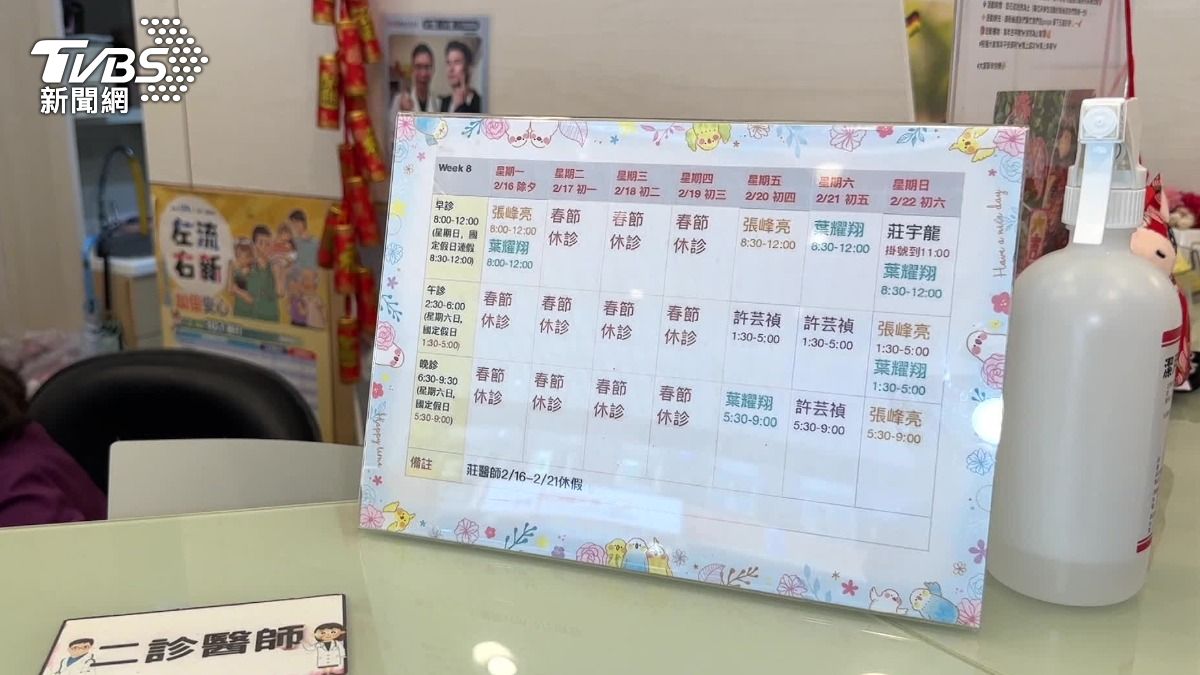 TVBS
新聞網
左流
右新
Week 8
星期一
2/16 除夕
星期二
2/17 初一
星期三
2/18 初二
星期四
2/19 初三
星期五
2/20 初四
星期六
2/21 初五
星期日
2/22 初六
早診
8:00-12:00
(星期日, 國
定假日連假
8:30-12:00)
張峰亮
8:00-12:00
葉耀翔
8:00-12:00
春節
休診
春節
休診
春節
休診
張峰亮
8:30-12:00
葉耀翔
8:30-12:00
莊宇龍
掛號到11:00
葉耀翔
8:30-12:00
午診
2:30-6:00
(星期六日,
國定假日
1:30-5:00)
春節
休診
春節
休診
春節
休診
春節
休診
許芸禎
1:30-5:00
許芸禎
1:30-5:00
張峰亮
1:30-5:00
葉耀翔
1:30-5:00
晚診
6:30-9:30
(星期六日,
國定假日
5:30-9:00)
春節
休診
春節
休診
春節
休診
春節
休診
葉耀翔
5:30-9:00
許芸禎
5:30-9:00
張峰亮
5:30-9:00
備註
莊醫師2/16-2/21休假
Have a nice day
Happy time
二診醫師